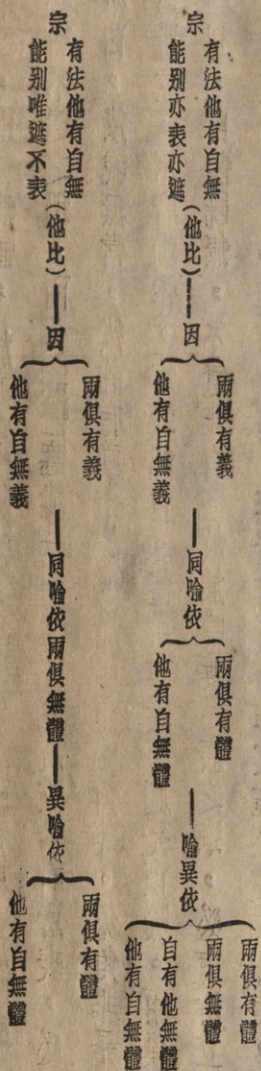 宗
有法他有自無
能别亦表亦遮
（他比）——因
兩俱有義
他有自無義
——同喻依
兩俱有體
他有自無體
——喻異依
兩俱有體
兩俱無體
自有他無體
他有自無體
宗
有法他有自無
能别唯遮不表
（他比）——因
兩俱有義
他有自無義
——同喻依兩俱無體——異喻依
兩俱有體
他有自無體